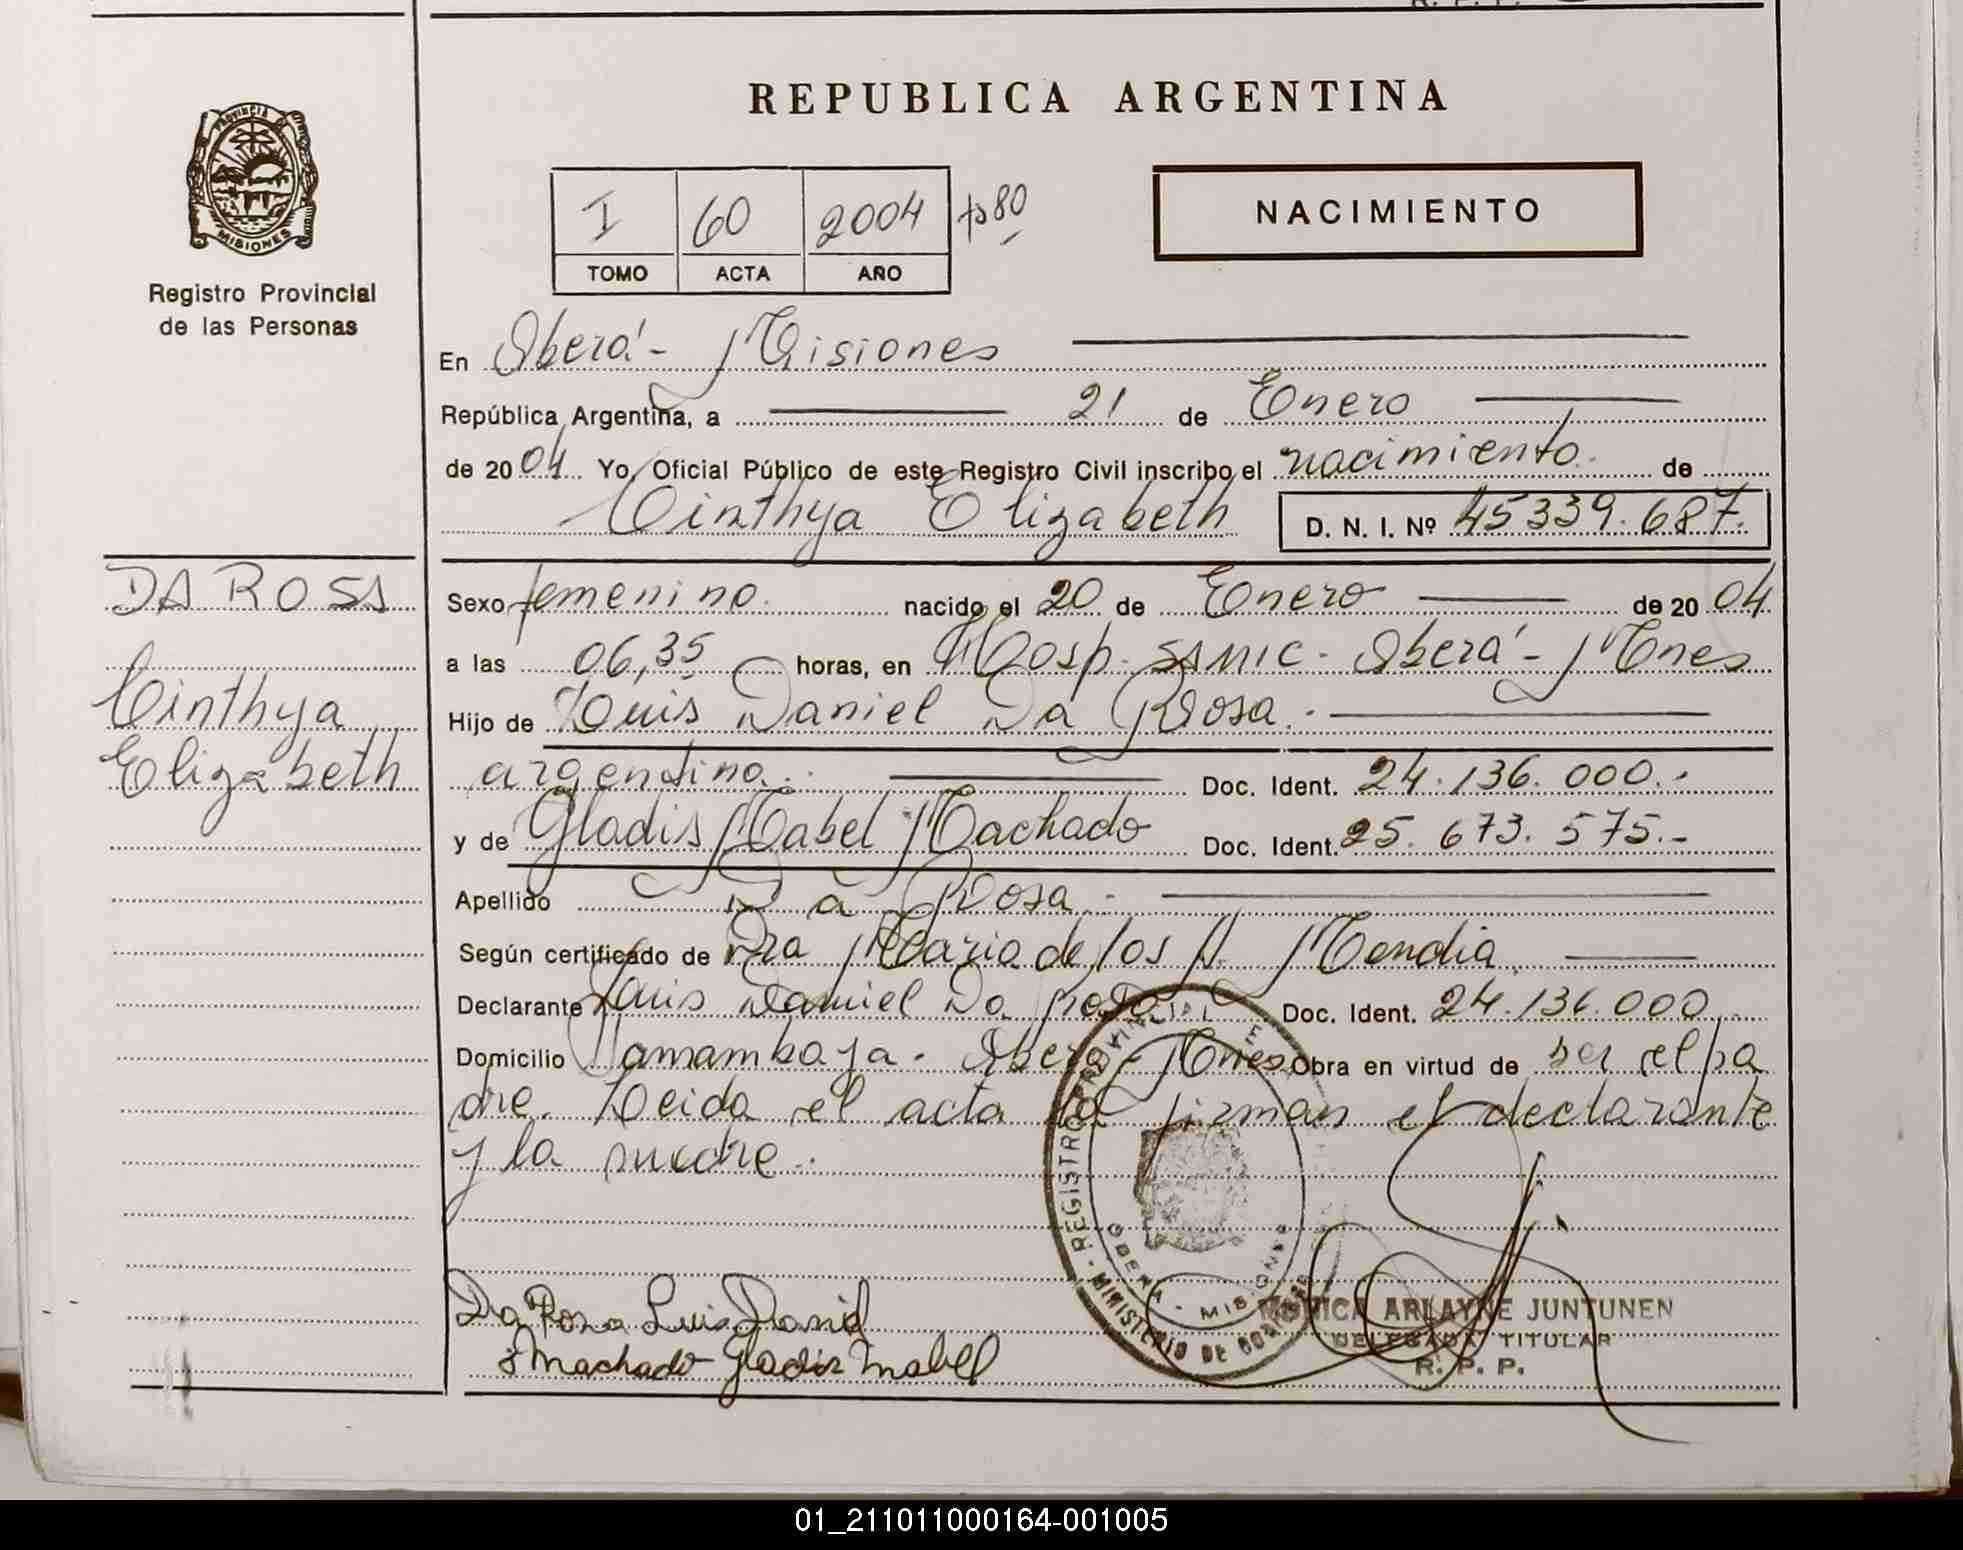 REPUBLICA ARGENTINA
PROVINCIA DE
MISIONES
Registro Provincial
de las Personas
I 60 2004 fº 80
TOMO ACTA AÑO
NACIMIENTO
En Oberá - Misiones
República Argentina, a 21 de Enero
de 2004 Yo, Oficial Público de este Registro Civil inscribo el nacimiento de
Cinthya Elizabeth D. N. I. Nº 45339.687.
DA ROSA
Cinthya
Elizabeth
Sexo femenino. nacido el 20 de Enero de 2004
a las 06,35 horas, en Hosp. SAMIC - Oberá - Mnes
Hijo de Luis Daniel Da Rosa.-
argentino. Doc. Ident. 24.136.000.-
y de Gladis Mabel Machado Doc. Ident. 25.673.575.-
Apellido Da Rosa.-
Según certificado de Dra Maria de los A. Mendia.
Declarante Luis Daniel Da Rosa Doc. Ident. 24.136.000
Domicilio Oberá - Mnes Obra en virtud de ser el pa
dre. Leida el acta la firman el declarante
y la madre.
REGISTRO PROVINCIAL
OBERA - MISIONES
MINISTERIO DE GOBIERNO
Da Rosa Luis Daniel
Machado Gladis Mabel
MONICA ARLAYNE JUNTUNEN
DELEGADA TITULAR
R. P. P.
01_211011000164-001005